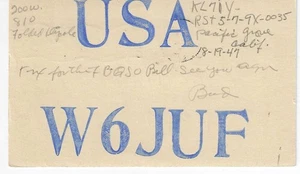 200W.
810
Folded Dipole
USA
KL71V-
RST 5-7-9X-0035
pacific grove
Calif.
18-19-47
for that QSO Bill see you agn
Bud
W6JUF